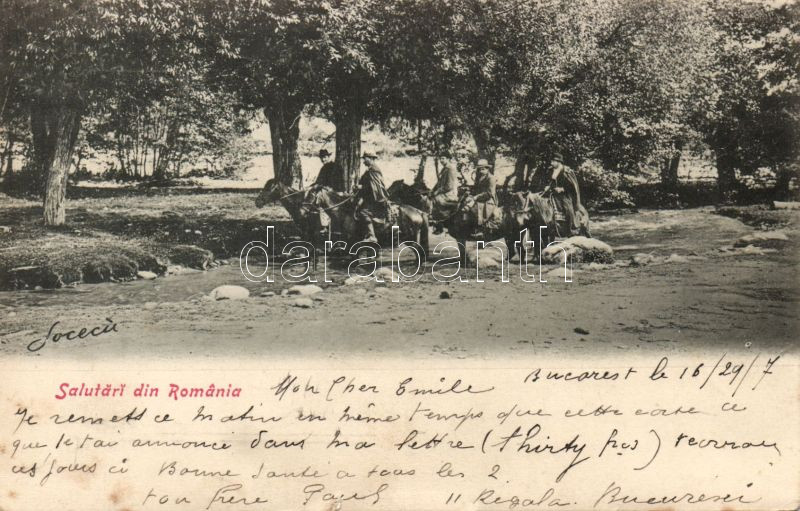 darabanth
Socecŭ
Salutări din România Mon Cher Emile Bucarest le 16/29/7
Je remets ce matin en même temps que cette carte ce
que je t'ai annoncé dans ma lettre (Thirty frcs)
ces jours ci Bonne Santé a tous les 2
ton frère Paul 11 Regala Bucuresci